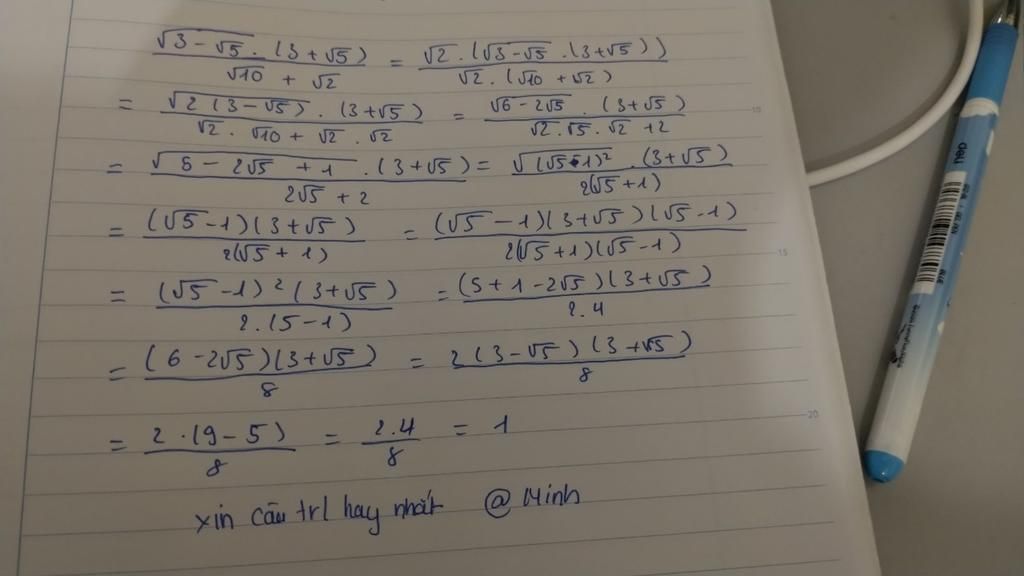 √(3 - √5) . (3 + √5) / (√10 + √2) = √2 . (√(3 - √5) . (3 + √5)) / (√2 . (√10 + √2))
= √(2(3 - √5)) . (3 + √5) / (√2 . √10 + √2 . √2) = √(6 - 2√5) . (3 + √5) / (√2 . √5 . √2 + 2)
= √(5 - 2√5 + 1) . (3 + √5) / (2√5 + 2) = √((√5 - 1)²) . (3 + √5) / (2(√5 + 1))
= (√5 - 1)(3 + √5) / (2(√5 + 1)) = (√5 - 1)(3 + √5)(√5 - 1) / (2(√5 + 1)(√5 - 1))
= (√5 - 1)²(3 + √5) / (2.(5 - 1)) = (5 + 1 - 2√5)(3 + √5) / (2.4)
= (6 - 2√5)(3 + √5) / 8 = 2(3 - √5)(3 + √5) / 8
= 2.(9 - 5) / 8 = 2.4 / 8 = 1
xin câu trl hay nhất @ Minh
10
15
20
deli